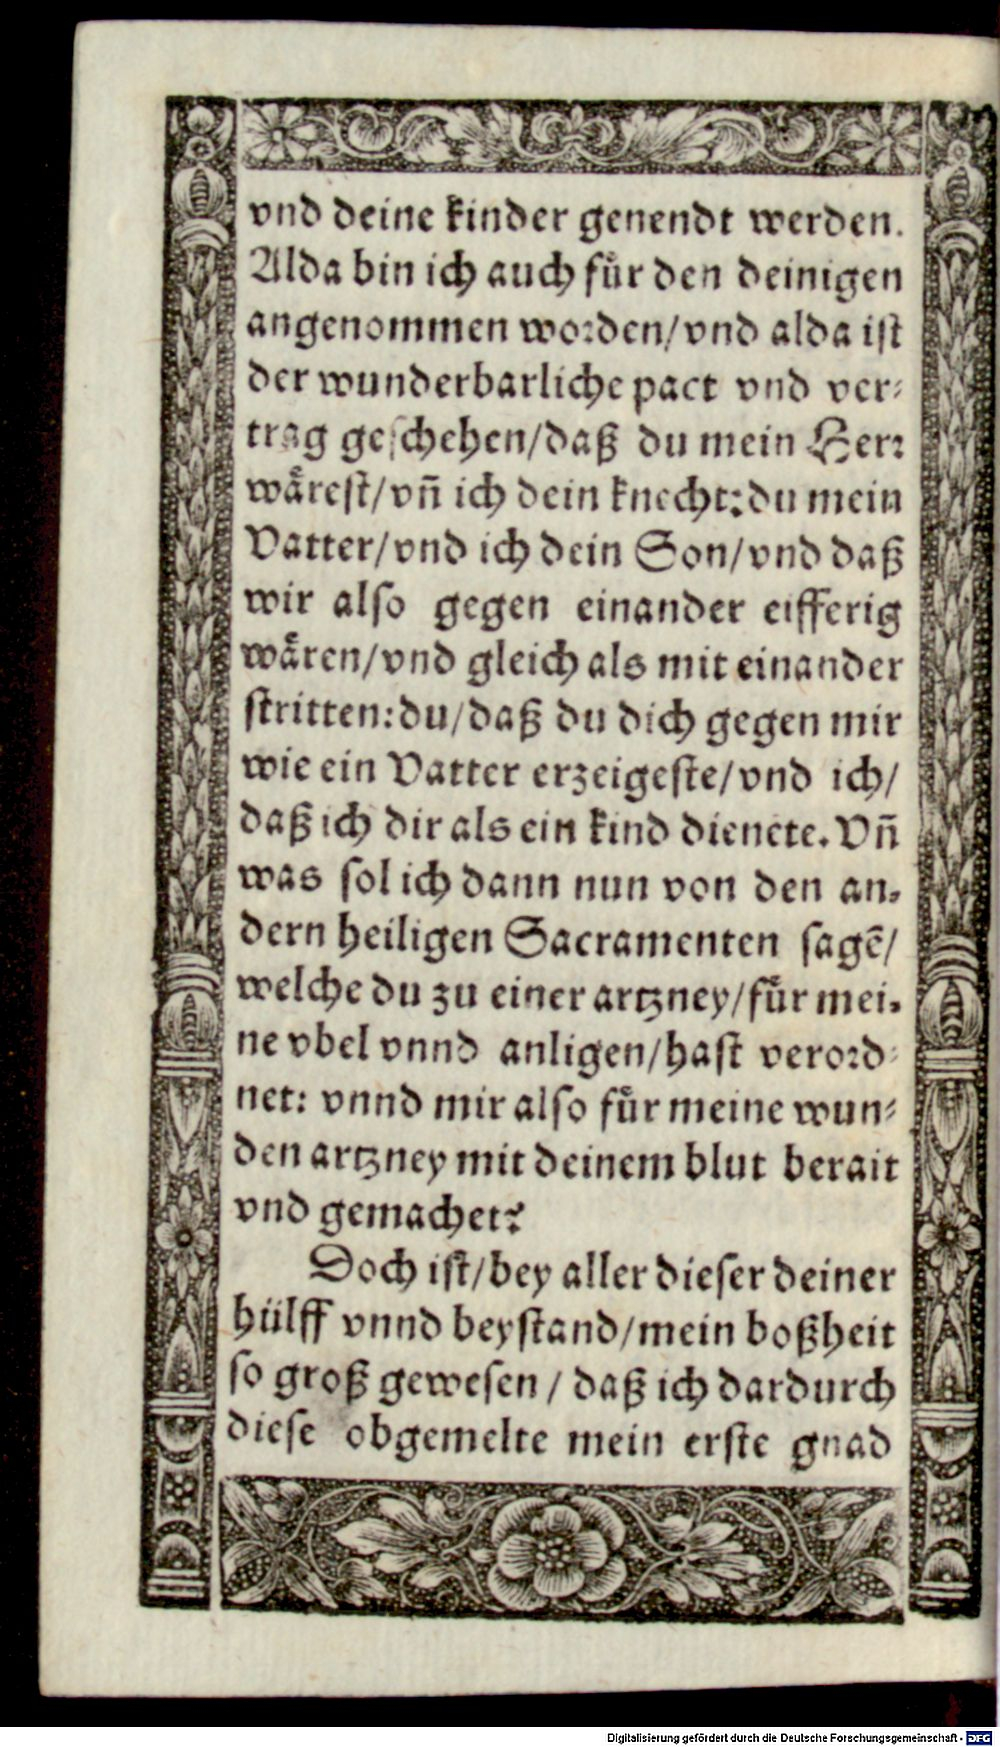 vnd deine kinder genendt werden.
Alda bin ich auch fuͤr den deinigen
angenommen worden/vnd alda ist
der wunderbarliche pact vnd ver⸗
trag geschehen/daß du mein Herr
waͤrest/vñ ich dein knecht:du mein
Vatter/vnd ich dein Son/vnd daß
wir also gegen einander eifferig
waͤren/vnd gleich als mit einander
stritten:du/daß du dich gegen mir
wie ein Vatter erzeigeste/vnd ich/
daß ich dir als ein kind dienete. Vñ
was sol ich dann nun von den an⸗
dern heiligen Sacramenten sagē/
welche du zu einer artzney/fuͤr mei⸗
ne vbel vnnd anligen/hast verord⸗
net: vnnd mir also fuͤr meine wun⸗
den artzney mit deinem blut berait
vnd gemachet?
Doch ist/bey aller dieser deiner
hülff vnnd beystand/mein boßheit
so groß gewesen / daß ich dardurch
diese obgemelte mein erste gnad
Digitalisierung gefördert durch die Deutsche Forschungsgemeinschaft - DFG